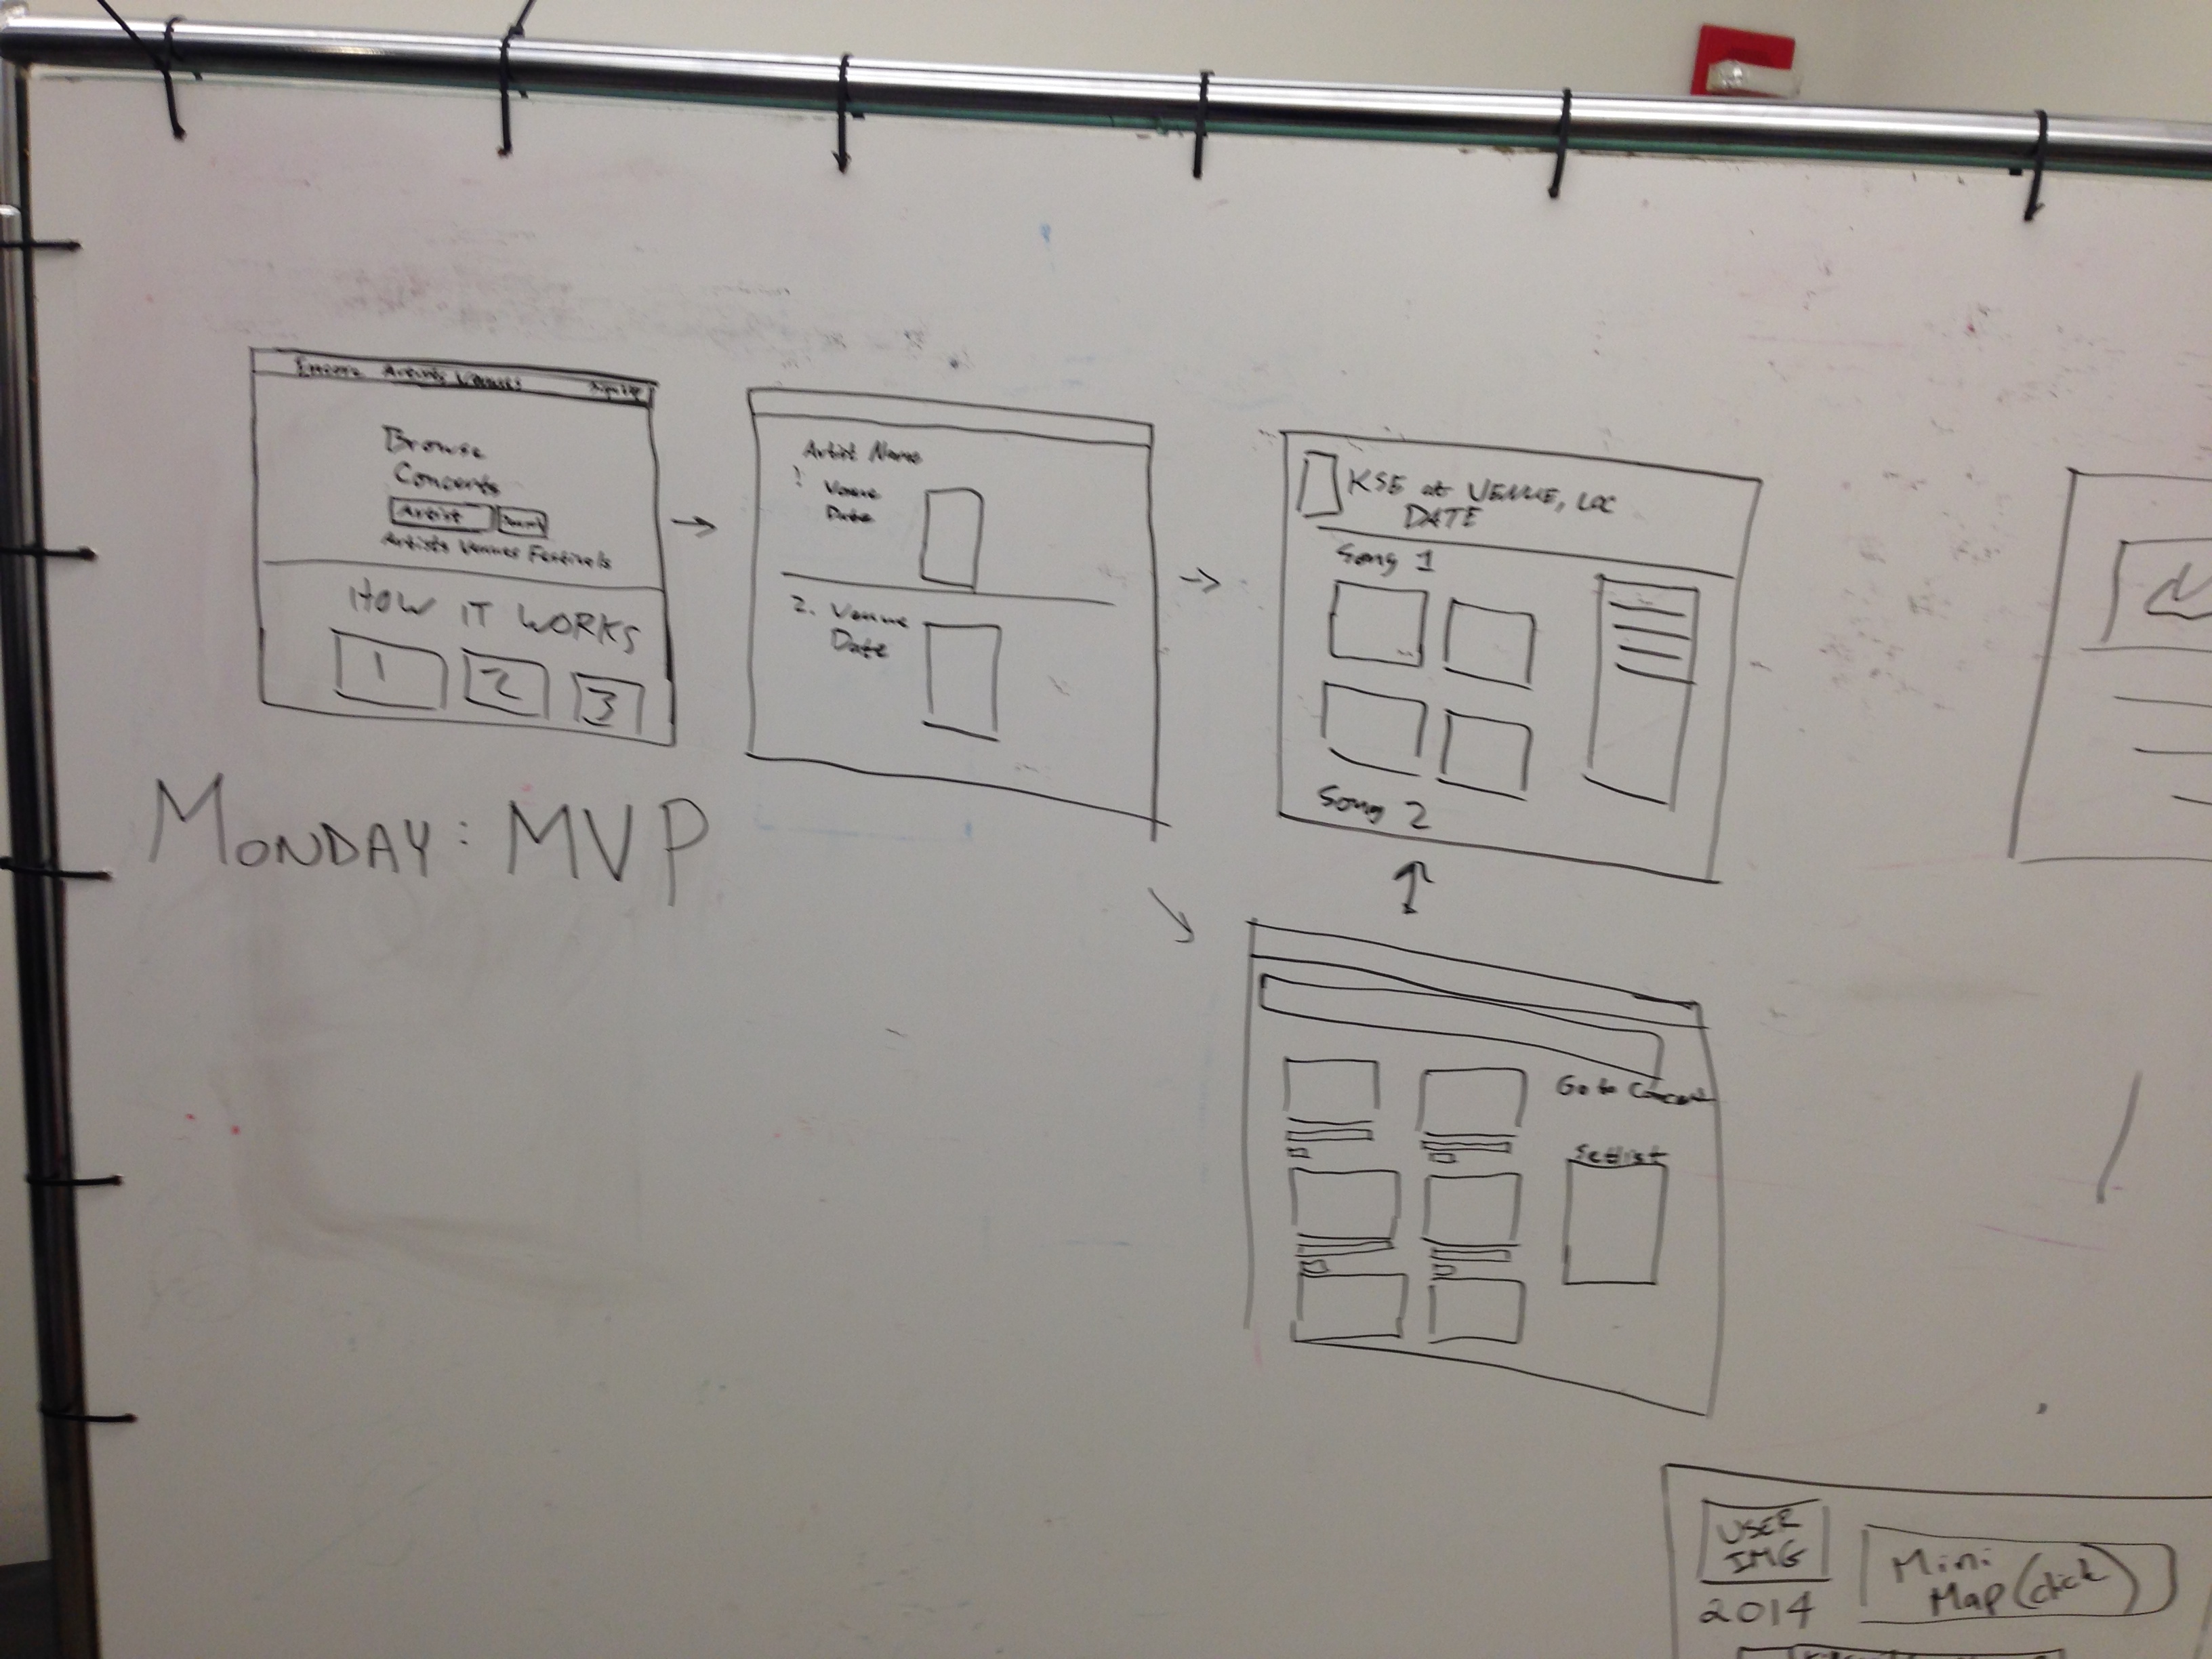 Encore Artists Venues Sign Up
Browse
Concerts
Artist Search
Artists Venues Festivals
HOW IT WORKS
1 2 3
MONDAY: MVP
Artist Name
1 Venue
Date
2. Venue
Date
KSE at VENUE, LOC
DATE
Song 1
Song 2
Go to Concert
Setlist
USER
IMG
2014
Mini
Map (click)